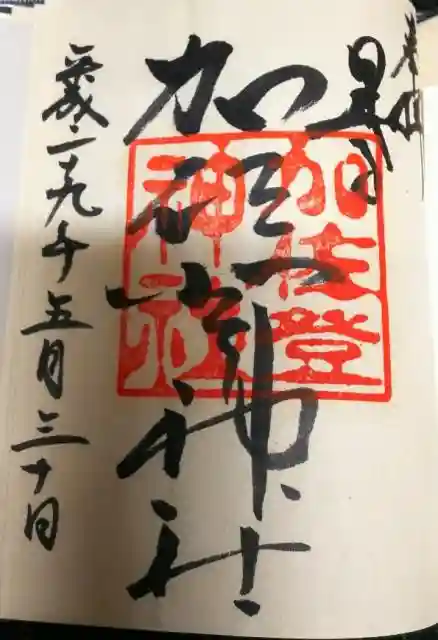 奉拝
加佐登神社
加佐登
神社
平成二十九年五月三十日